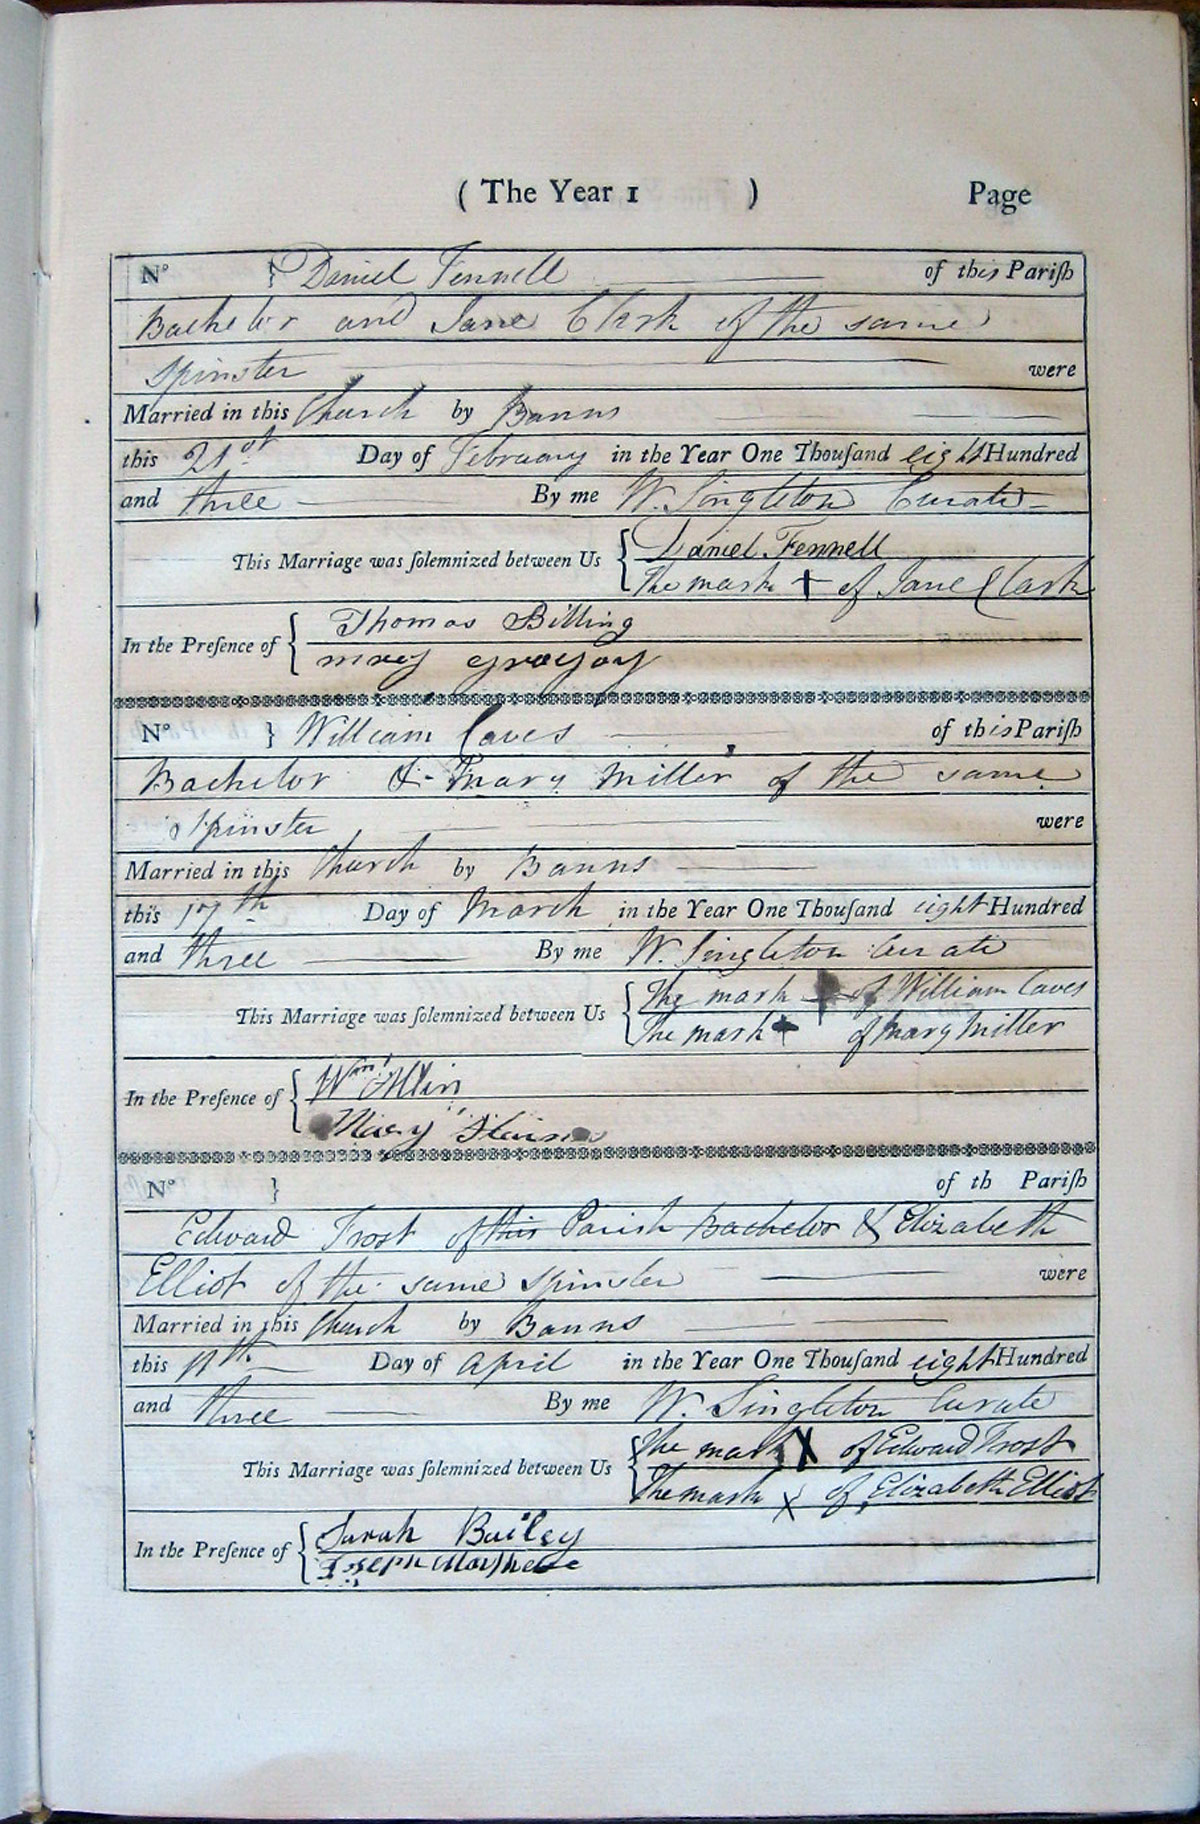 ( The Year 1 ) Page
No } Daniel Fennell of this Pariſh
Bachelor and Jane Clark of the same
Spinster were
Married in this Church by Banns
this 21st Day of February in the Year One Thouſand eight Hundred
and three By me W. Singleton Curate
This Marriage was ſolemnized between Us { Daniel Fennell
The mark + of Jane Clark
In the Preſence of { Thomas Billing
mrey gregory
No } William Caves of this Pariſh
Bachelor & Mary Miller of the same
Spinster were
Married in this Church by Banns
this 17th Day of March in the Year One Thouſand eight Hundred
and three By me W. Singleton Curate
This Marriage was ſolemnized between Us { The mark + of William Caves
The mark + of Mary Miller
In the Preſence of { Wm Allin
Mary
No } of th Pariſh
Edward Frost of this Parish Bachelor & Elizabeth
Elliot of the same Spinster were
Married in this Church by Banns
this 11th Day of April in the Year One Thouſand eight Hundred
and three By me W. Singleton Curate
This Marriage was ſolemnized between Us { The mark X of Edward Frost
The mark X of Elizabeth Elliot
In the Preſence of { Sarah Bailey
Joseph